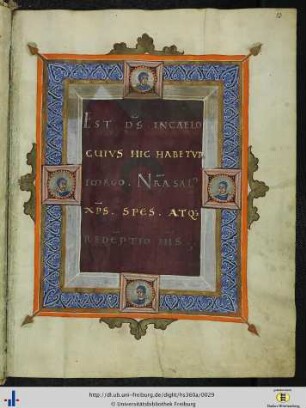 EST DS̄ INCAELO
CUIVS HIC HABETVR
IMAGO. NR̄A SALVS
XP̄S. SPES. ATQ;
REDEMPTIO
http://dl.ub.uni-freiburg.de/diglit/hs360a/0029
© Universitätsbibliothek Freiburg